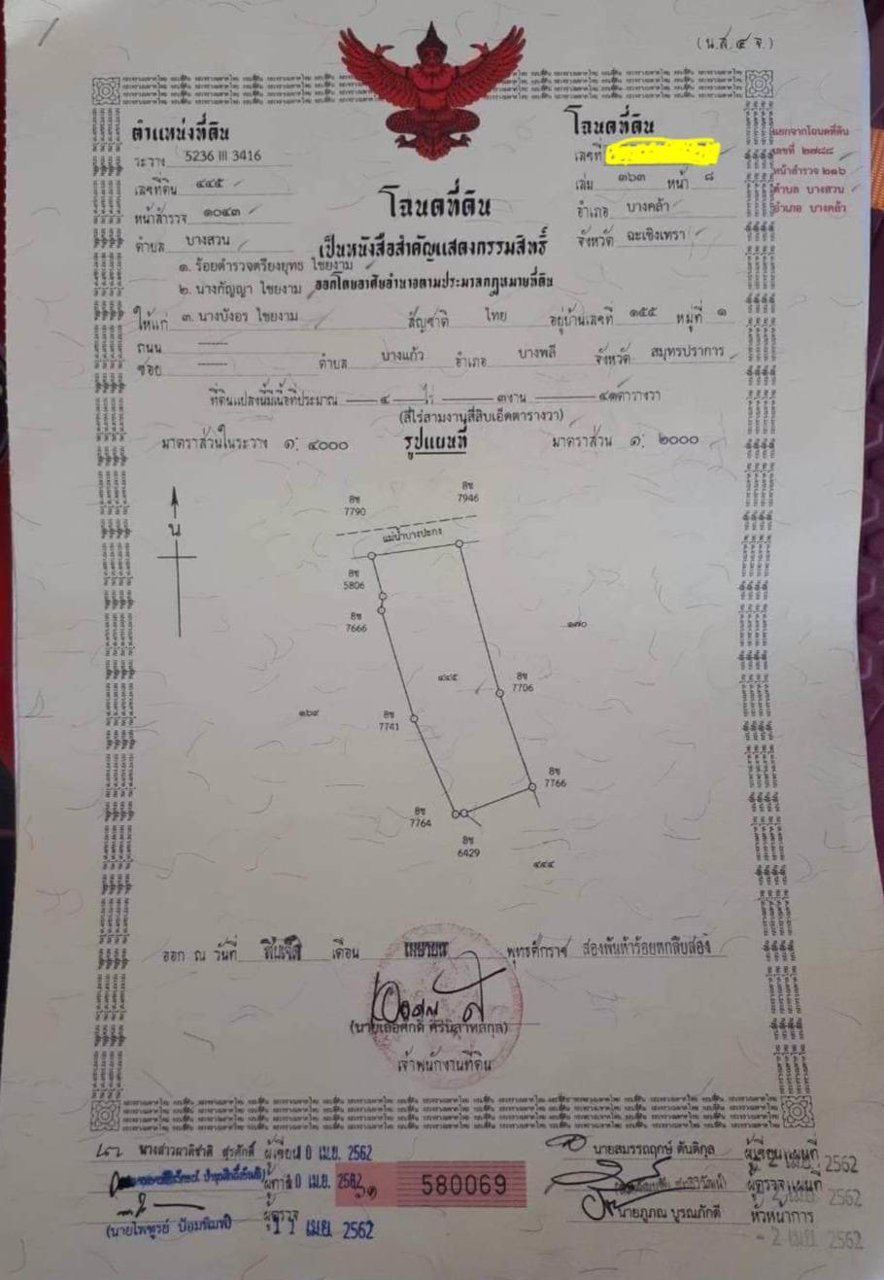 (น.ส.๔ จ.)
ตำแหน่งที่ดิน
ระวาง 5236 III 3416
เลขที่ดิน ๔๔๕
หน้าสำรวจ ๑๐๔๓
ตำบล บางสวน
โฉนดที่ดิน
เลขที่
เล่ม ๓๖๓ หน้า ๘
อำเภอ บางคล้า
จังหวัด ฉะเชิงเทรา
แยกจากโฉนดที่ดิน
เลขที่ ๒๗๘๘
หน้าสำรวจ ๒๑๖
ตำบล บางสวน
อำเภอ บางคล้า
โฉนดที่ดิน
เป็นหนังสือสำคัญแสดงกรรมสิทธิ์
ออกโดยอาศัยอำนาจตามประมวลกฎหมายที่ดิน
๑. ร้อยตำรวจตรียงยุทธ ไชยงาม
๒. นางกัญญา ไชยงาม
ให้แก่ ๓. นางบังอร ไชยงาม สัญชาติ ไทย อยู่บ้านเลขที่ ๑๕๕ หมู่ที่ ๑
ถนน
ซอย ตำบล บางแก้ว อำเภอ บางพลี จังหวัด สมุทรปราการ
ที่ดินแปลงนี้มีเนื้อที่ประมาณ ๔ ไร่ ๓ งาน ๔๑ ตารางวา
(สี่ไร่สามงานสี่สิบเอ็ดตารางวา)
มาตราส่วนในระวาง ๑: ๔๐๐๐ รูปแผนที่ มาตราส่วน ๑: ๒๐๐๐
น
8ช 7790
8ช 7946
แม่น้ำบางปะกง
8ช 5806
8ช 7666
๑๗๐
๔๔๕
8ช 7706
๑๖๙
8ช 7741
8ช 7766
8ช 7764
8ช 6429
๔๔๔
ออก ณ วันที่ เดือน เมษายน พุทธศักราช สองพันห้าร้อยหกสิบสอง
เจ้าพนักงานที่ดิน
ผู้เขียน เม.ย. 2562
580069
ผู้ตรวจ 11 เม.ย. 2562
นายสมรรถฤกษ์ ตันติกุล ผู้เขียนแผนที่ 2 เม.ย. 2562
ผู้ตรวจแผนที่ 2 เม.ย. 2562
นายภูภณ บูรณภักดี หัวหน้าการ
- 2 เม.ย. 2562